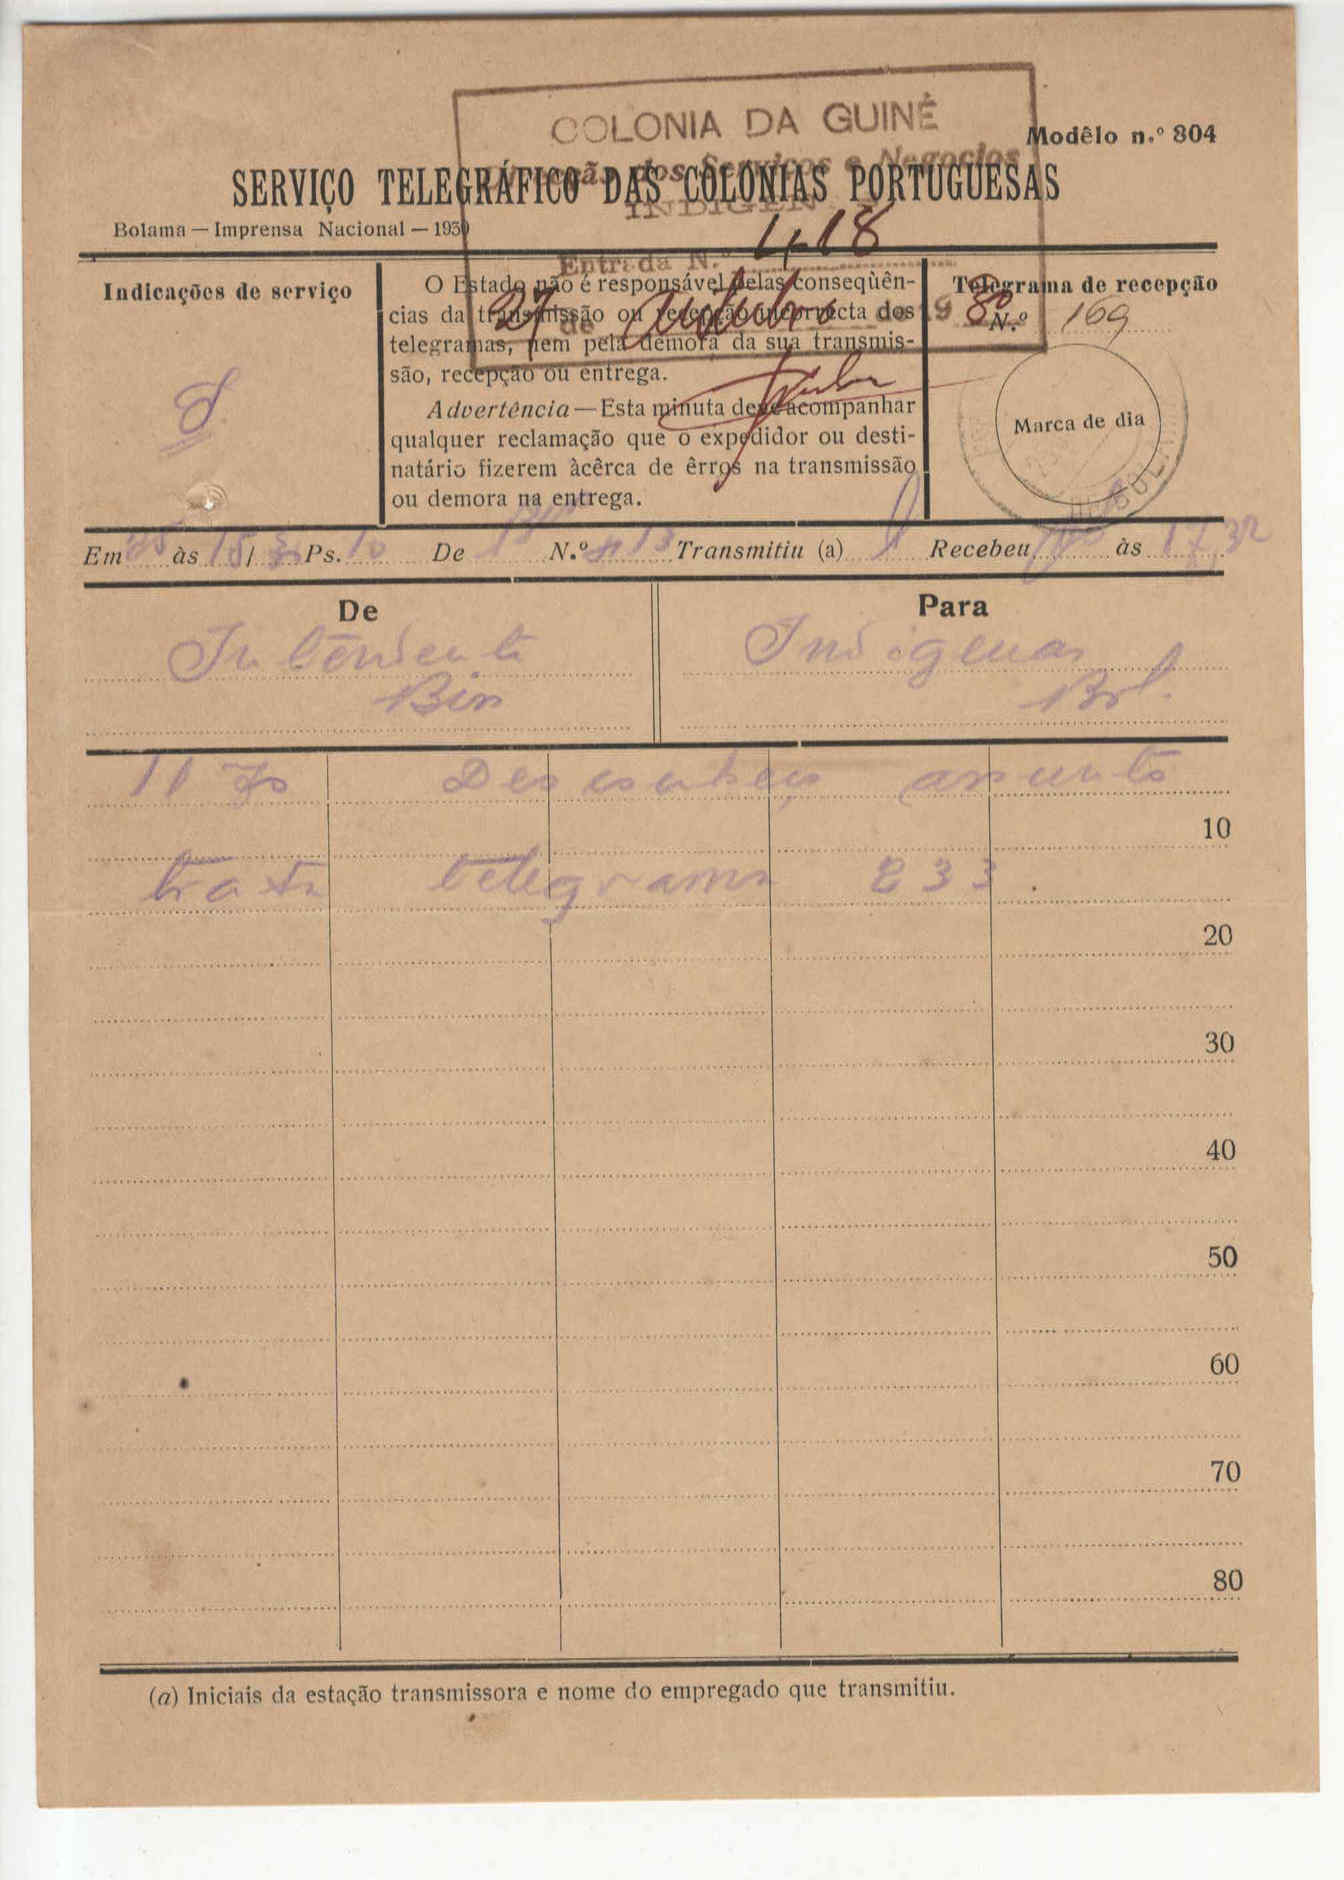 COLONIA DA GUINÉ
Modêlo n.º 804
dos Serviços e Negocios
SERVIÇO TELEGRÁFICO DAS COLONIAS PORTUGUESAS
INDIGEN
Bolama — Imprensa Nacional — 1930
Entrada N.º 418
27 de Outubro de 1930
Indicações de serviço
O Estado não é responsável pelas conseqùên-
cias da transmissão ou recepção incorrecta dos
telegramas, nem pela demora da sua transmis-
são, recepção ou entrega.
Advertência — Esta minuta deve acompanhar
qualquer reclamação que o expedidor ou desti-
natário fizerem àcêrca de êrros na transmissão
ou demora na entrega.
Telegrama de recepção
N.º 169
Marca de dia
Em 25 às 15/30 Ps. 10 De N.º 13 Transmitiu (a) Recebeu às 17,32
De
Intendente
Bis
Para
Indigenas
Bol.
1170 Desconheço assunto
10
trata telegrama 233
20
30
40
50
60
70
80
(a) Iniciais da estação transmissora e nome do empregado que transmitiu.